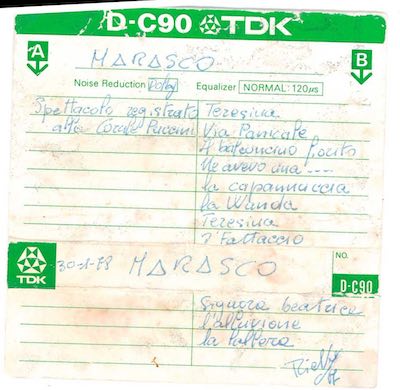 D-C90 TDK
A
B
MARASCO
Noise Reduction Dolby Equalizer NORMAL: 120µs
Spettacolo registrato
alla Corale Puccini
Teresina
Via Pancale
Il balconcino fiorito
Ne avevo una ....
la capannuccia
la Wanda
Teresina
I' Fattaccio
TDK
30-1-78 MARASCO
NO.
D-C90
Signora beatrice
l'alluvione